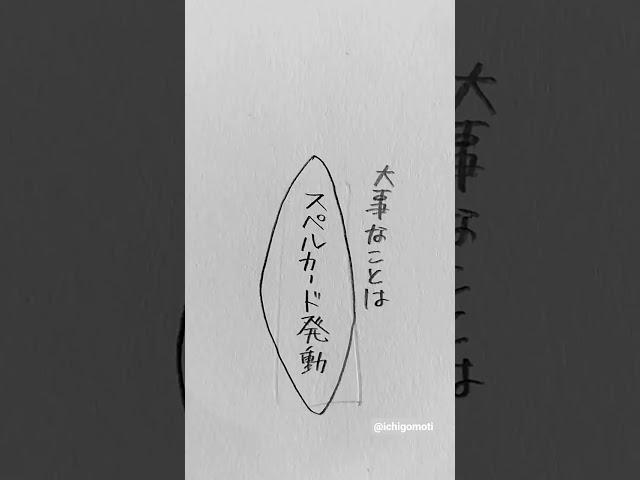 大事なことは
スペルカード発動
@ichigomoti
大事なことは